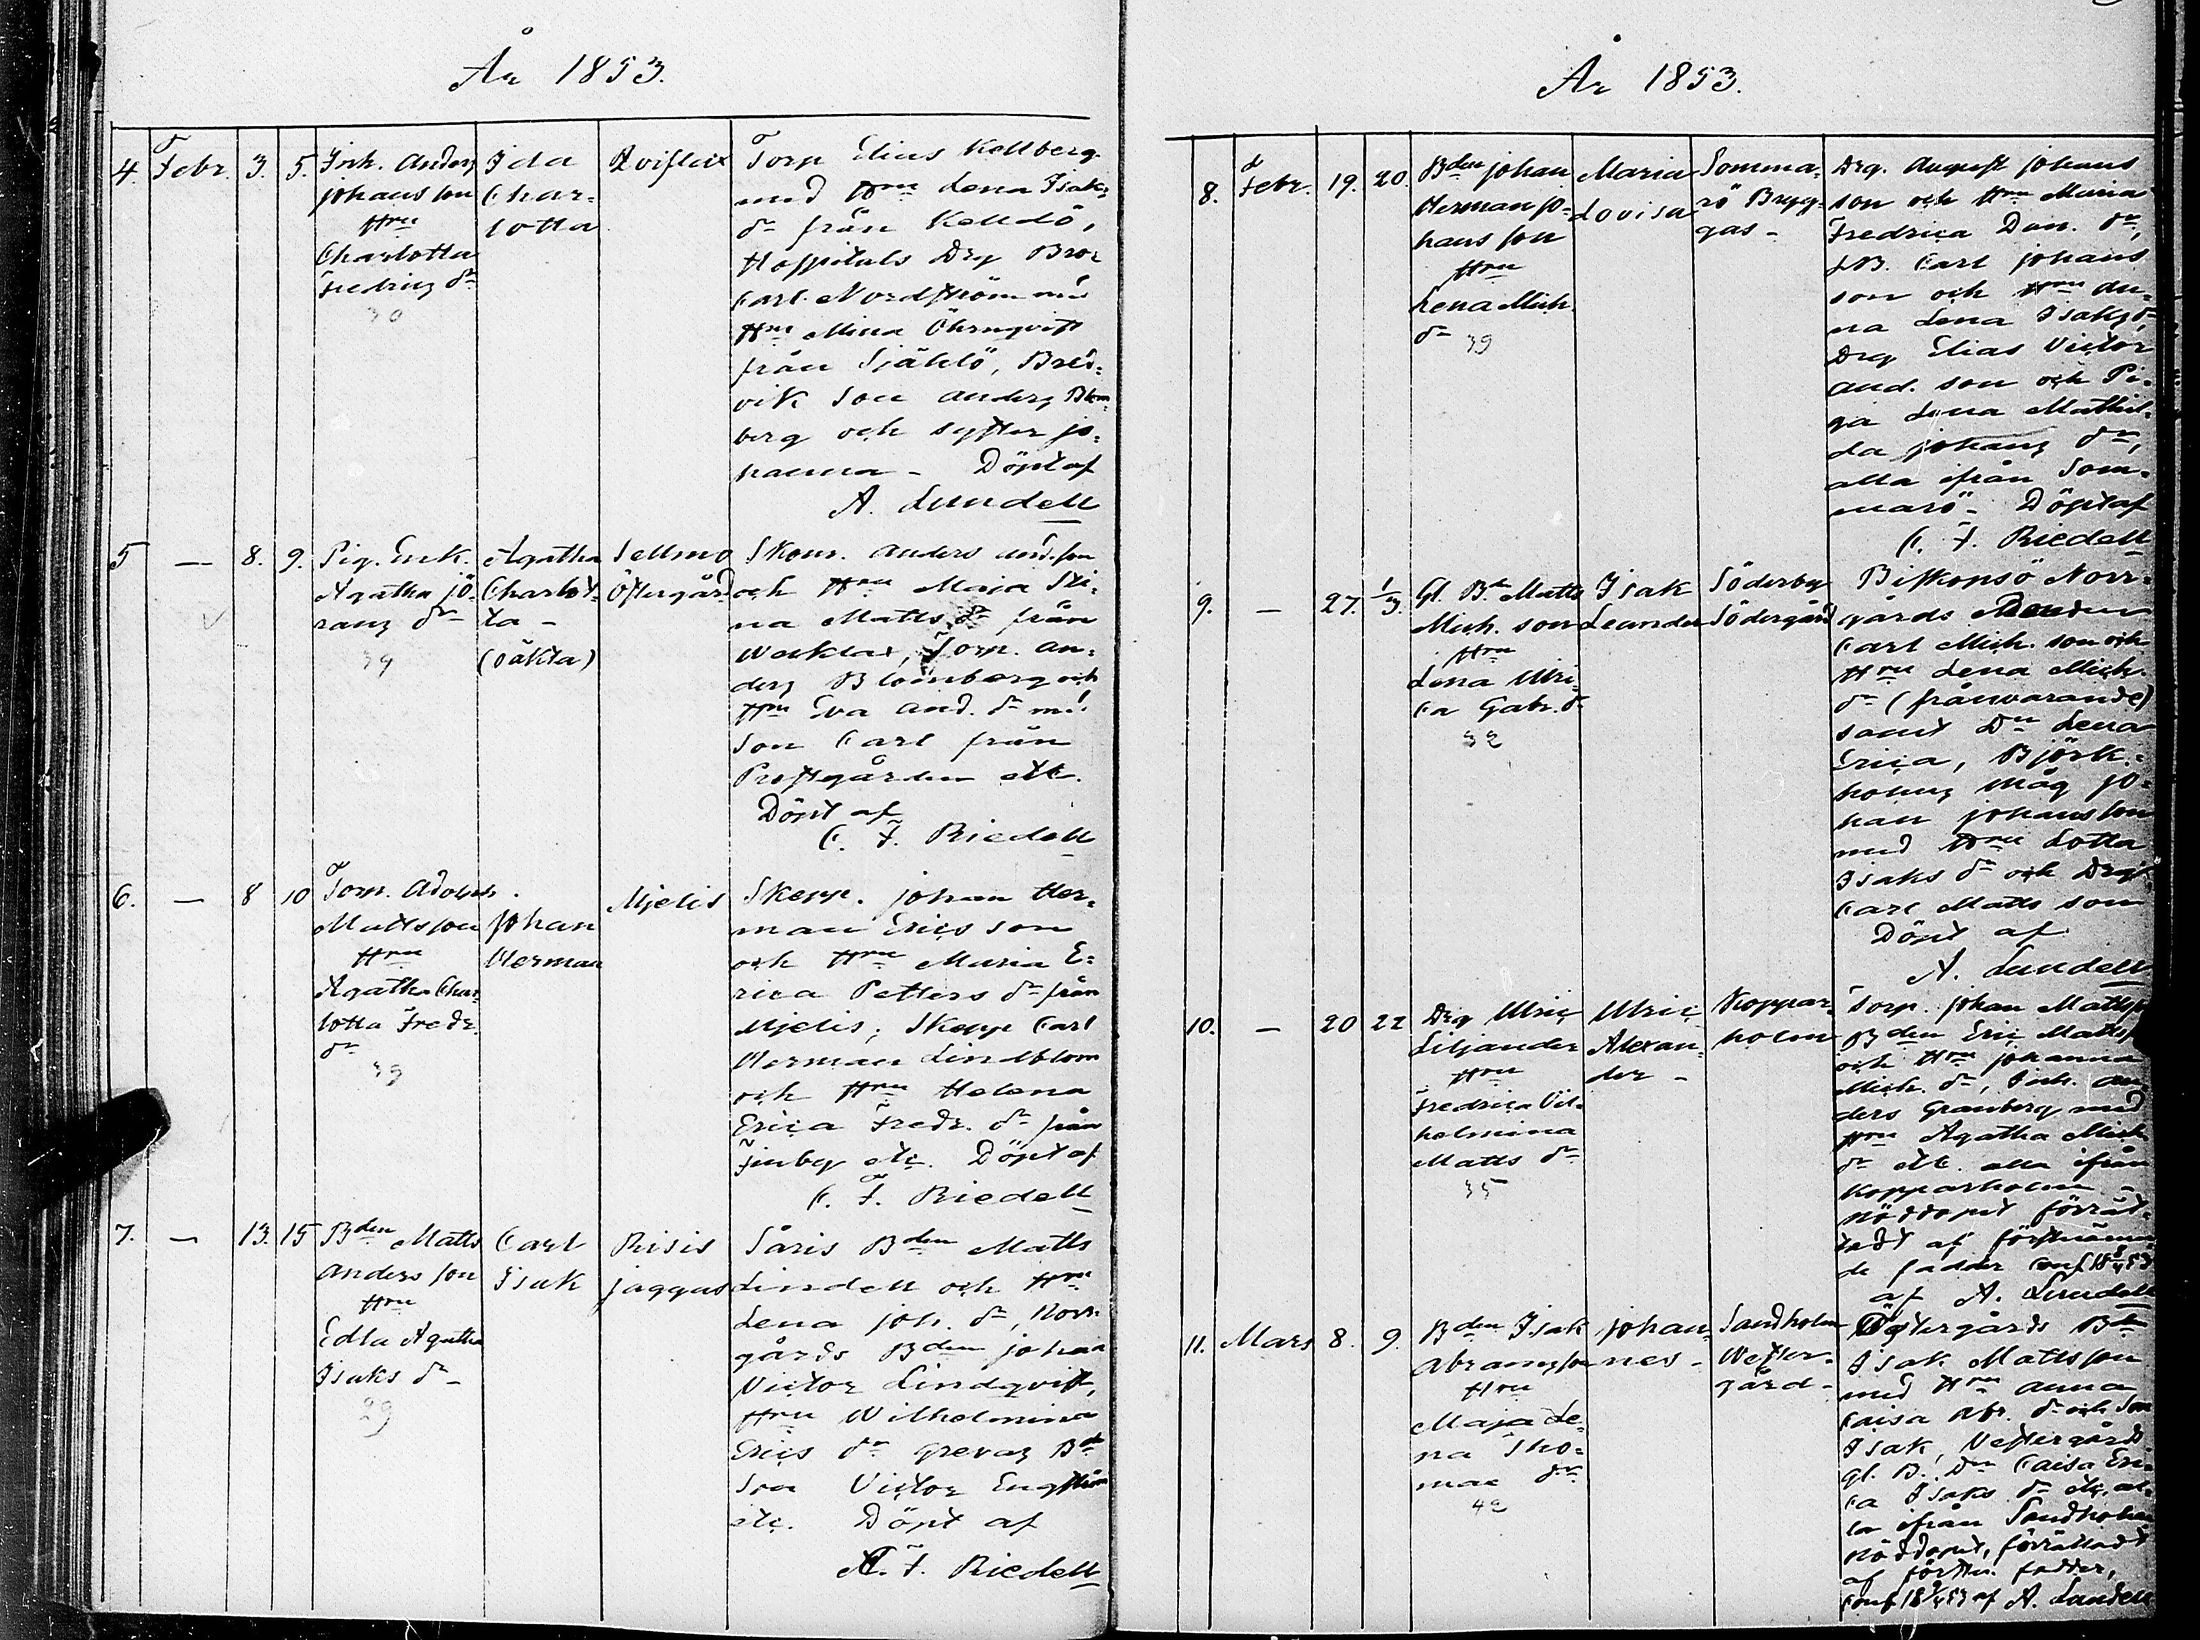 År 1853.
4. Febr. 3. 5.
Inh. Anders
Johansson
Hru
Charlotta
Fredriz dr
30
Ida
Char-
lotta
Qviflax
Torp Elias Kellberg
med Hru Lena Isaks
dr från Kelldö,
Hospitals Drg Bror
Carl Nordström med
Hru Mina Öhrnqvist
från Själklö, Bred-
vik Son Anders Blom-
berg och syster Jo-
hanna - Döpt af
A. Lundell
5 — 8. 9.
Pig. Enk.
Agatha Jö-
ranz dr
39
Agatha
Charlot-
ta -
(oäkta)
Sellmo
Östergård
Skom. Anders And.son
och Hru Maja Sti-
na Matts dr från
Worklax, Torp. An-
derz Blomberg och
Hru Eva And. dr med
Son Carl från
Prostgården etc.
Döpt af
C. F. Riedell
6. — 8 10
Torp. Adolph
Mattsson
Hru
Agatha Char-
lotta Fredr.
dr
39
Johan
Herman
Mjelis
Skepp. Johan Her-
man Ericsson
och Hru Maria E-
rica Petters dr från
Mjelis, Skepp Carl
Herman Lindblom
och Hru Helena
Erica Fredr. dr från
Finby etc. Döpt af
C. F. Riedell
7. — 13. 15
Bden Matts
Andersson
Hru
Edla Agatha
Isaks dr -
29
Carl
Isak
Risis
Jaggas
Såris Bden Matts
Lindell och Hru
Lena Joh. dr, Norr-
gårds Bden Johan
Victor Lindqvist,
Hru Wilhelmina
Erics dr Grevaz Bd
Son Victor Engström
etc. Döpt af
C. F. Riedell
År 1853.
8. Febr. 19. 20.
Bden Johan
Herman Jo-
hansson
Hru
Lena Mich.
dr 39
Maria
Lovisa
Somma-
rö Brygg-
gas -
Drg. August Johans
son och Hru Maria
Fredrica Dan. dr,
LB. Carl Johans
son och Hru An-
na Lena Isakz dr
Drg Elias Victor
And. son och Pi-
ga Lena Mathil-
da Johanz dr,
alla ifrån Som-
marö - Döpt af
C. F. Riedell
9. — 27. 1/3.
Gl. Bd. Matts
Mich. son
Hru
Lena Ulri-
ca Gabr. dr
32
Isak
Leander
Söderby
Södergård
Biskopsö Norr-
gårds Bonden
Carl Mich. son och
Hru Lena Mich.
dr (frånvarande)
samt Dr Lena
Erica, Björk-
holmz Måg Jo-
han Johansson
med Hru Lotta
Isaks dr och Drg
Carl Mattsson
Döpt af
A. Lundell
10. — 20 22
Drg Ulric
Liljander
Hru
Fredrica Vil-
helmina
Matts dr
35
Ulric
Alexan-
der -
Koppar-
holm
Torp. Johan Matts
Bden Eric Matts
och Hru Johanna
Mich. dr, Inh. An-
ders Granberg med
Hru Agatha Mich
dr etc. alla ifrån
Kopparholm -
Nöddopet förrät-
tadt af förstnämn-
de fadder
af A. Lundell
11. Mars 8. 9.
Bden Isak
Abramsson
Hru
Maja Le-
na Tho-
mae dr
42
Johan-
nes -
Sandholm
Wester-
gård -
Östergårds Bd
Isak Mattsson
med Hru Anna
Caisa Abr. dr och Son
Isak, Vestergårds
gl. B. Dr Caisa Eri-
ca Isaks dr etc, al-
la ifrån Sandholm
Nöddopet, förrättadt
af förstn. fadder,
af A. Lundell